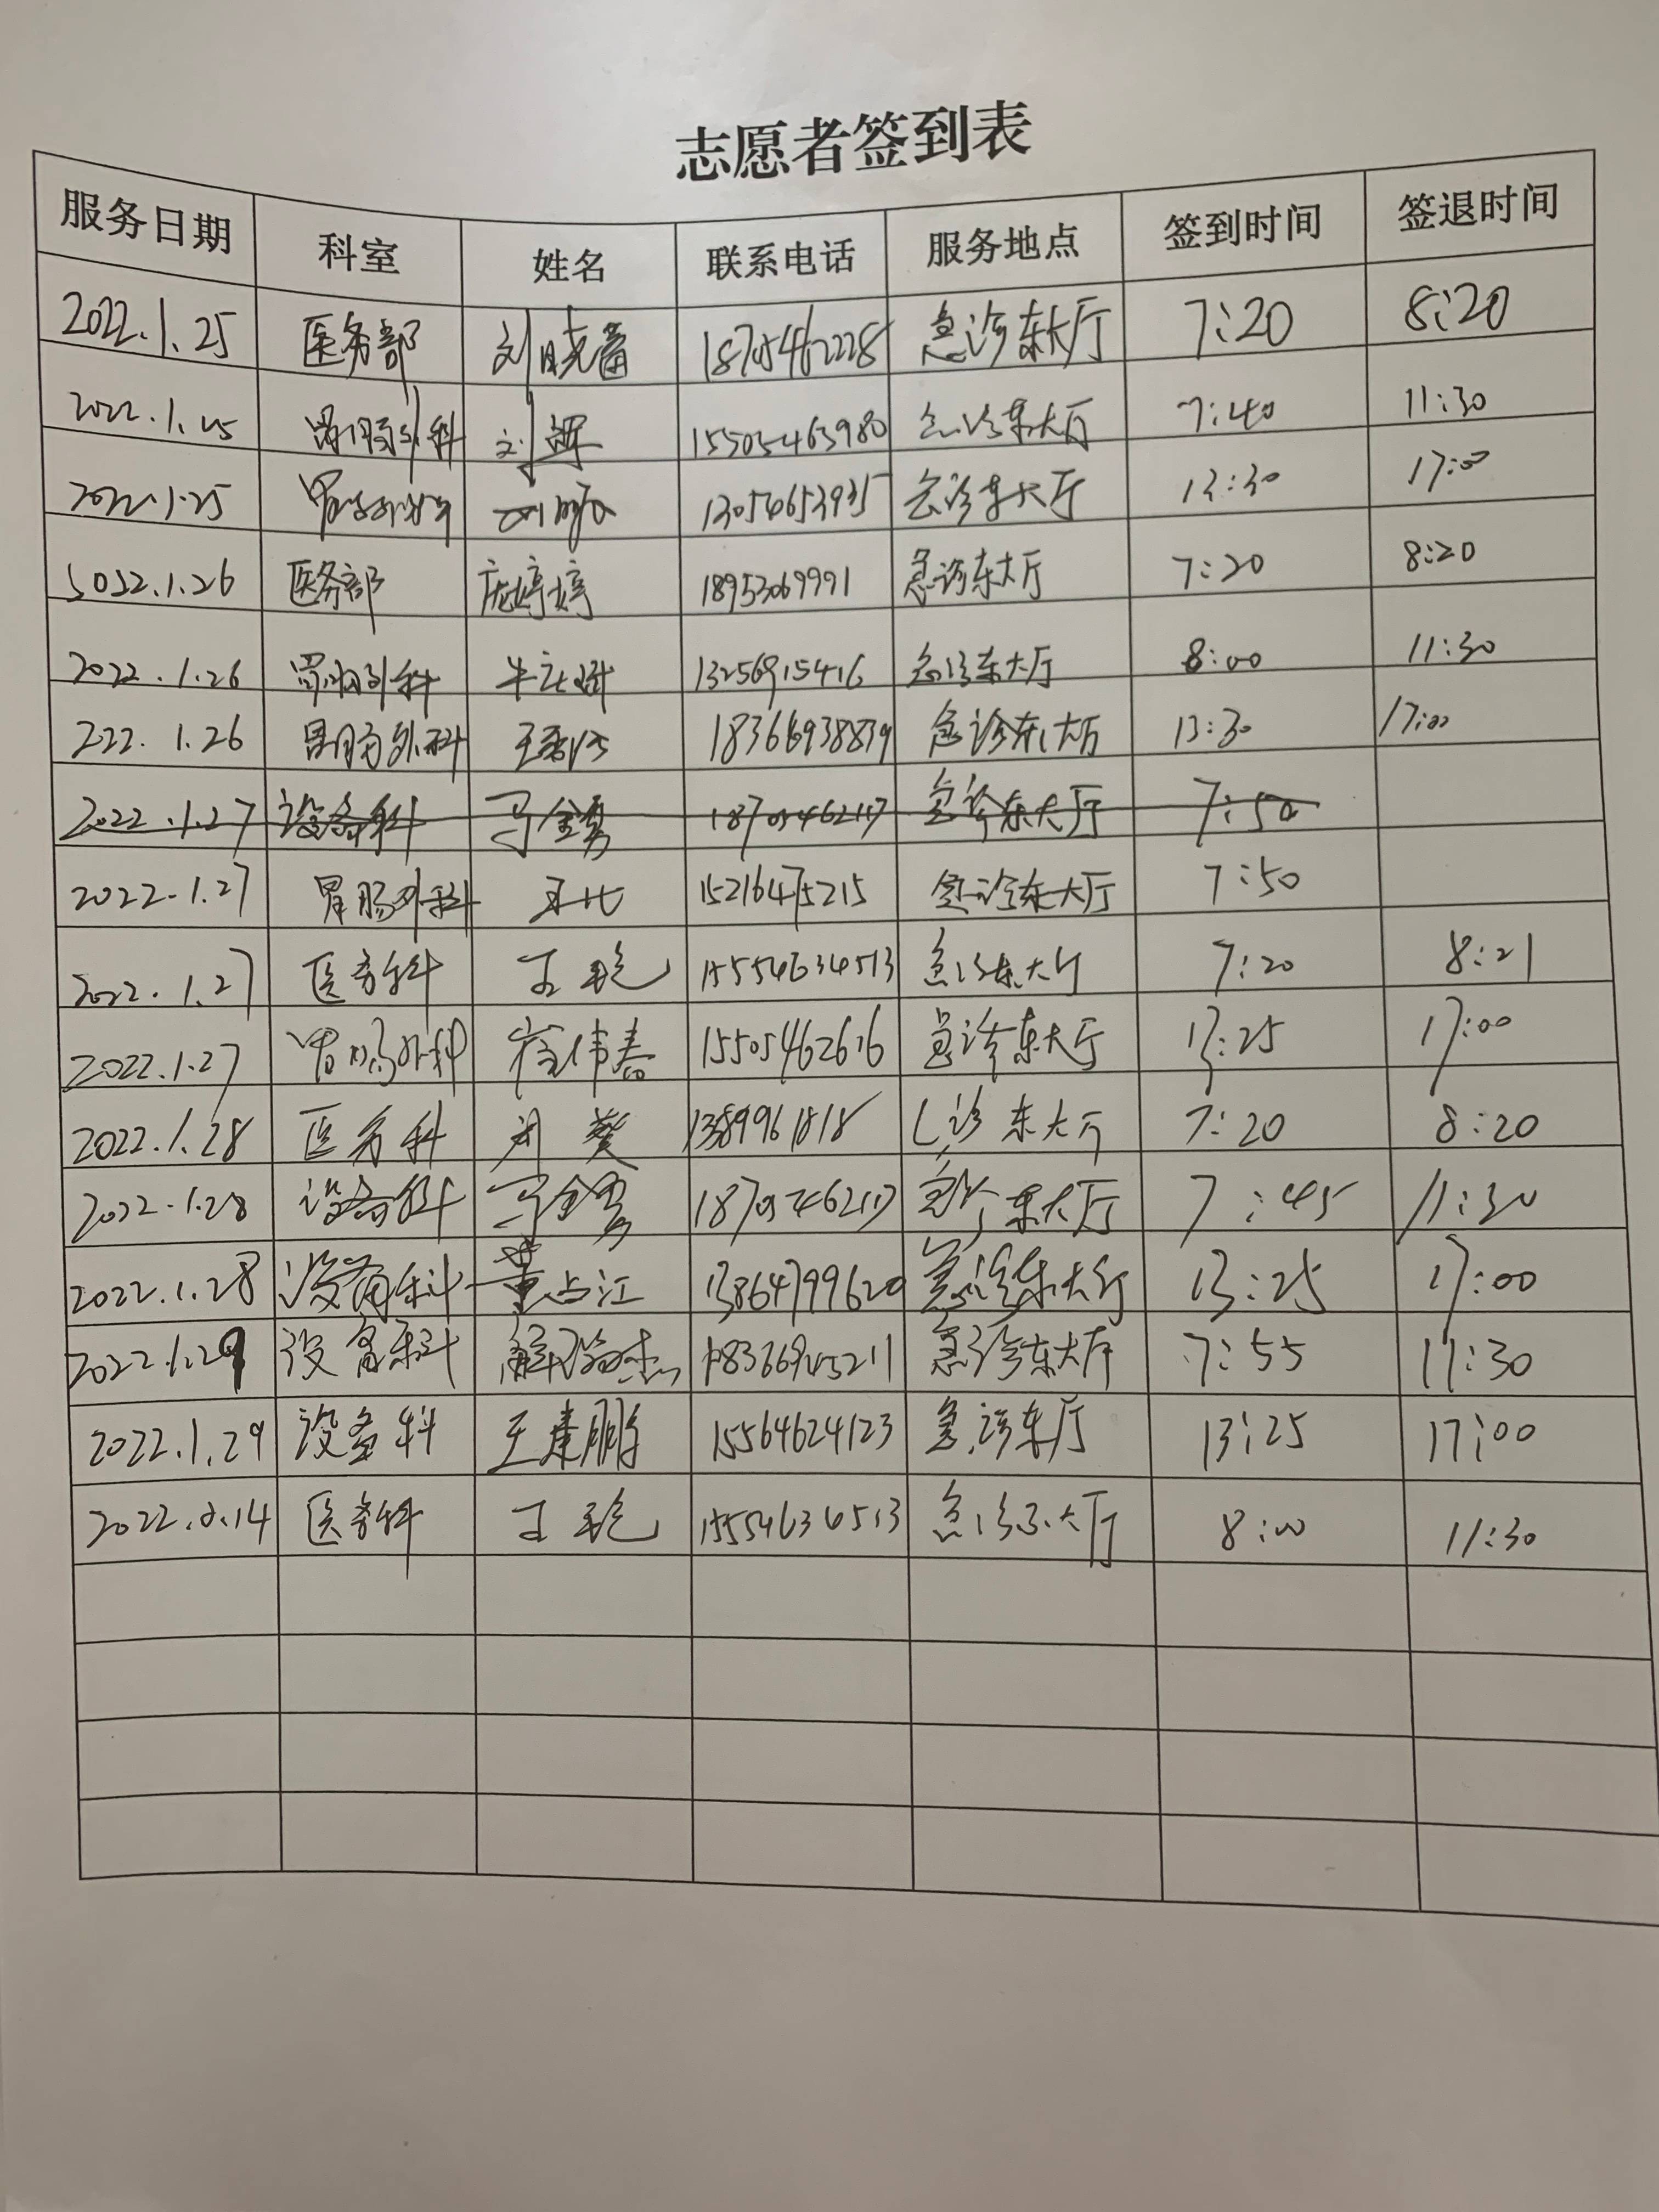 志愿者签到表
服务日期 科室 姓名 联系电话 服务地点 签到时间 签退时间
2022.1.25 医务部 刘晓蕾 急诊东大厅 7:20 8:20
2022.1.25 胃肠外科 15505463980 急诊东大厅 7:40 11:30
2022.1.25 13054653935 急诊东大厅 13:30 17:00
医务部 庞婷婷 18953069991 急诊东大厅 7:20 8:20
2022.1.26 胃肠外科 13256915416 急诊东大厅 8:00 11:30
222.1.26 胃肠外科 急诊东大厅 13:30 17:00
2022.1.27 设备科 急诊东大厅 7:50
2022.1.27 胃肠外科 15216475215 急诊东大厅 7:50
2022.1.27 医务科 15554634513 急诊东大厅 7:20 8:21
2022.1.27 胃肠外科 崔伟春 15505462616 急诊东大厅 13:25 17:00
2022.1.28 医务科 13899961818 急诊东大厅 7:20 8:20
2022.1.28 设备科 急诊东大厅 7:45 11:30
2022.1.28 设备科 董占江 13864799620 急诊东大厅 13:25 17:00
2022.1.29 设备科 急诊东大厅 7:55 11:30
2022.1.29 设备科 王建鹏 15564624123 急诊东厅 13:25 17:00
医务科 15554634513 急诊东大厅 8:00 11:30